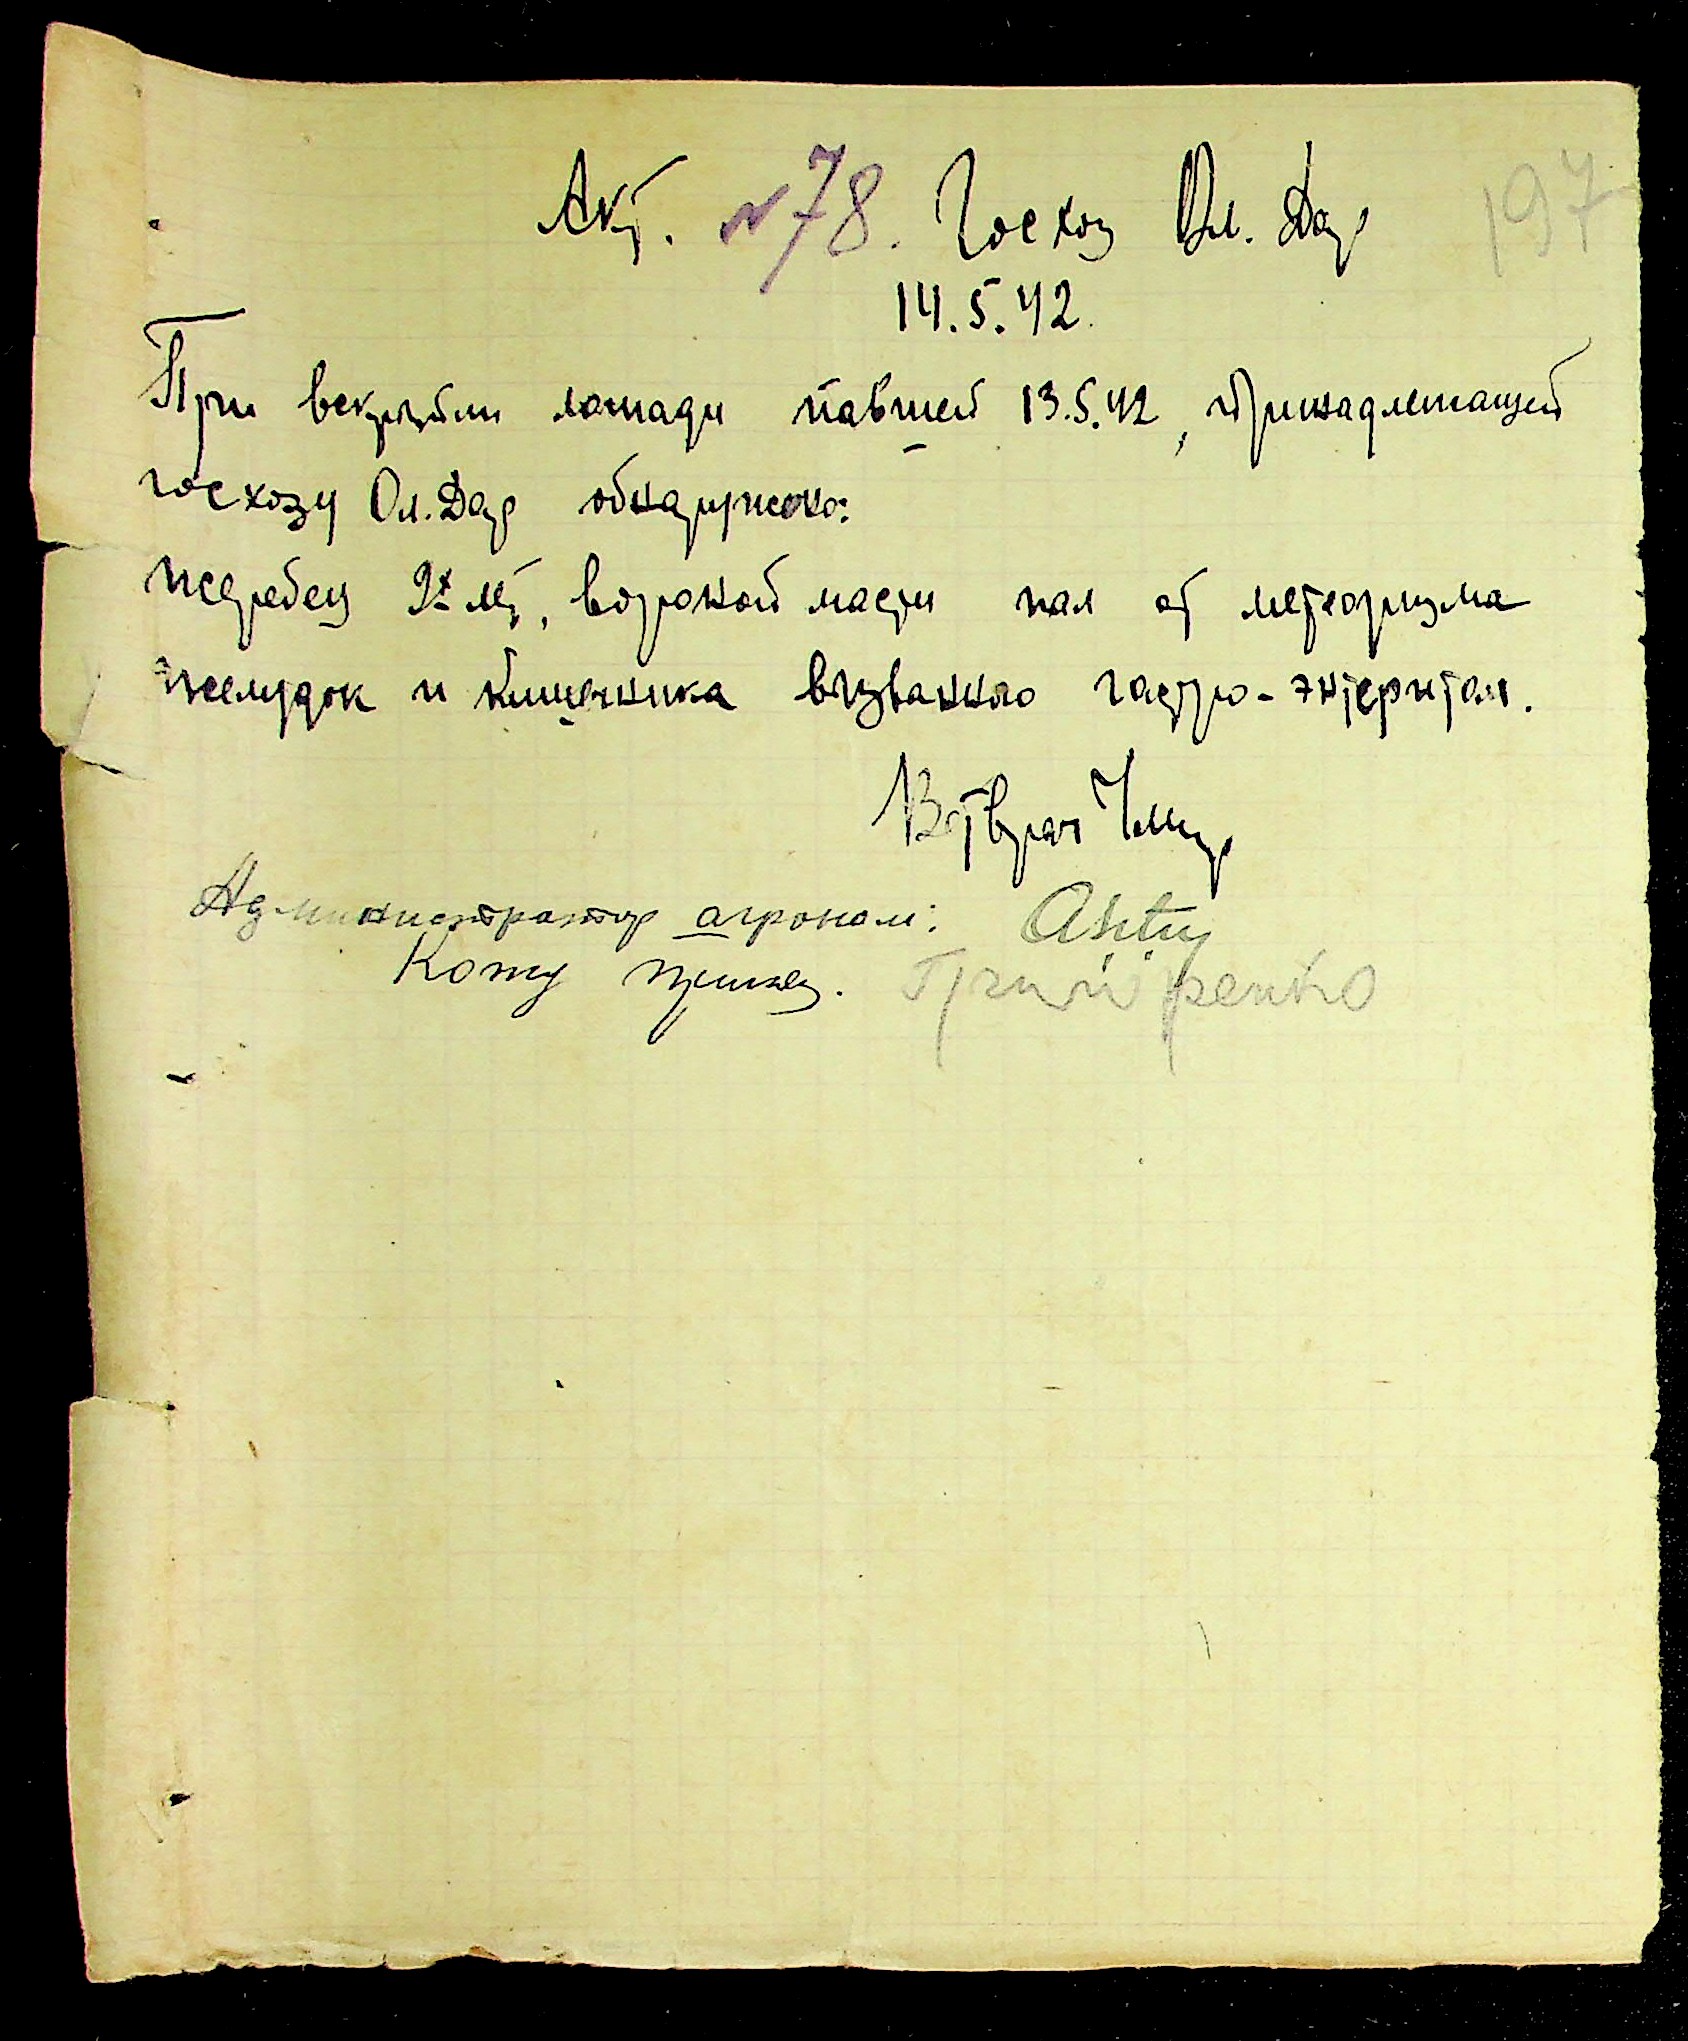 Акт. №78. Госхоз Ол. Дар
197
14.5.42.
При вскрытии лошади павшей 13.5.42, принадлежащей
госхозу Ол. Дар обнаружено:
жеребец 9х лет, вороной масти пал от метеоризма
желудок и кишечника вызванного гастро-энтеритом.
Ветврач
Администратор агроном:
Кожу принял.